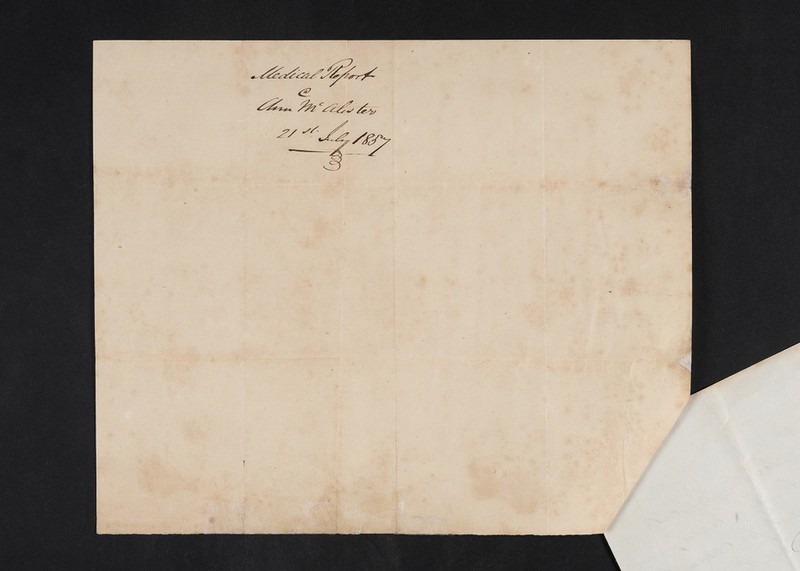 Medical Report
C
Ann Mc Alister
21st July 1857